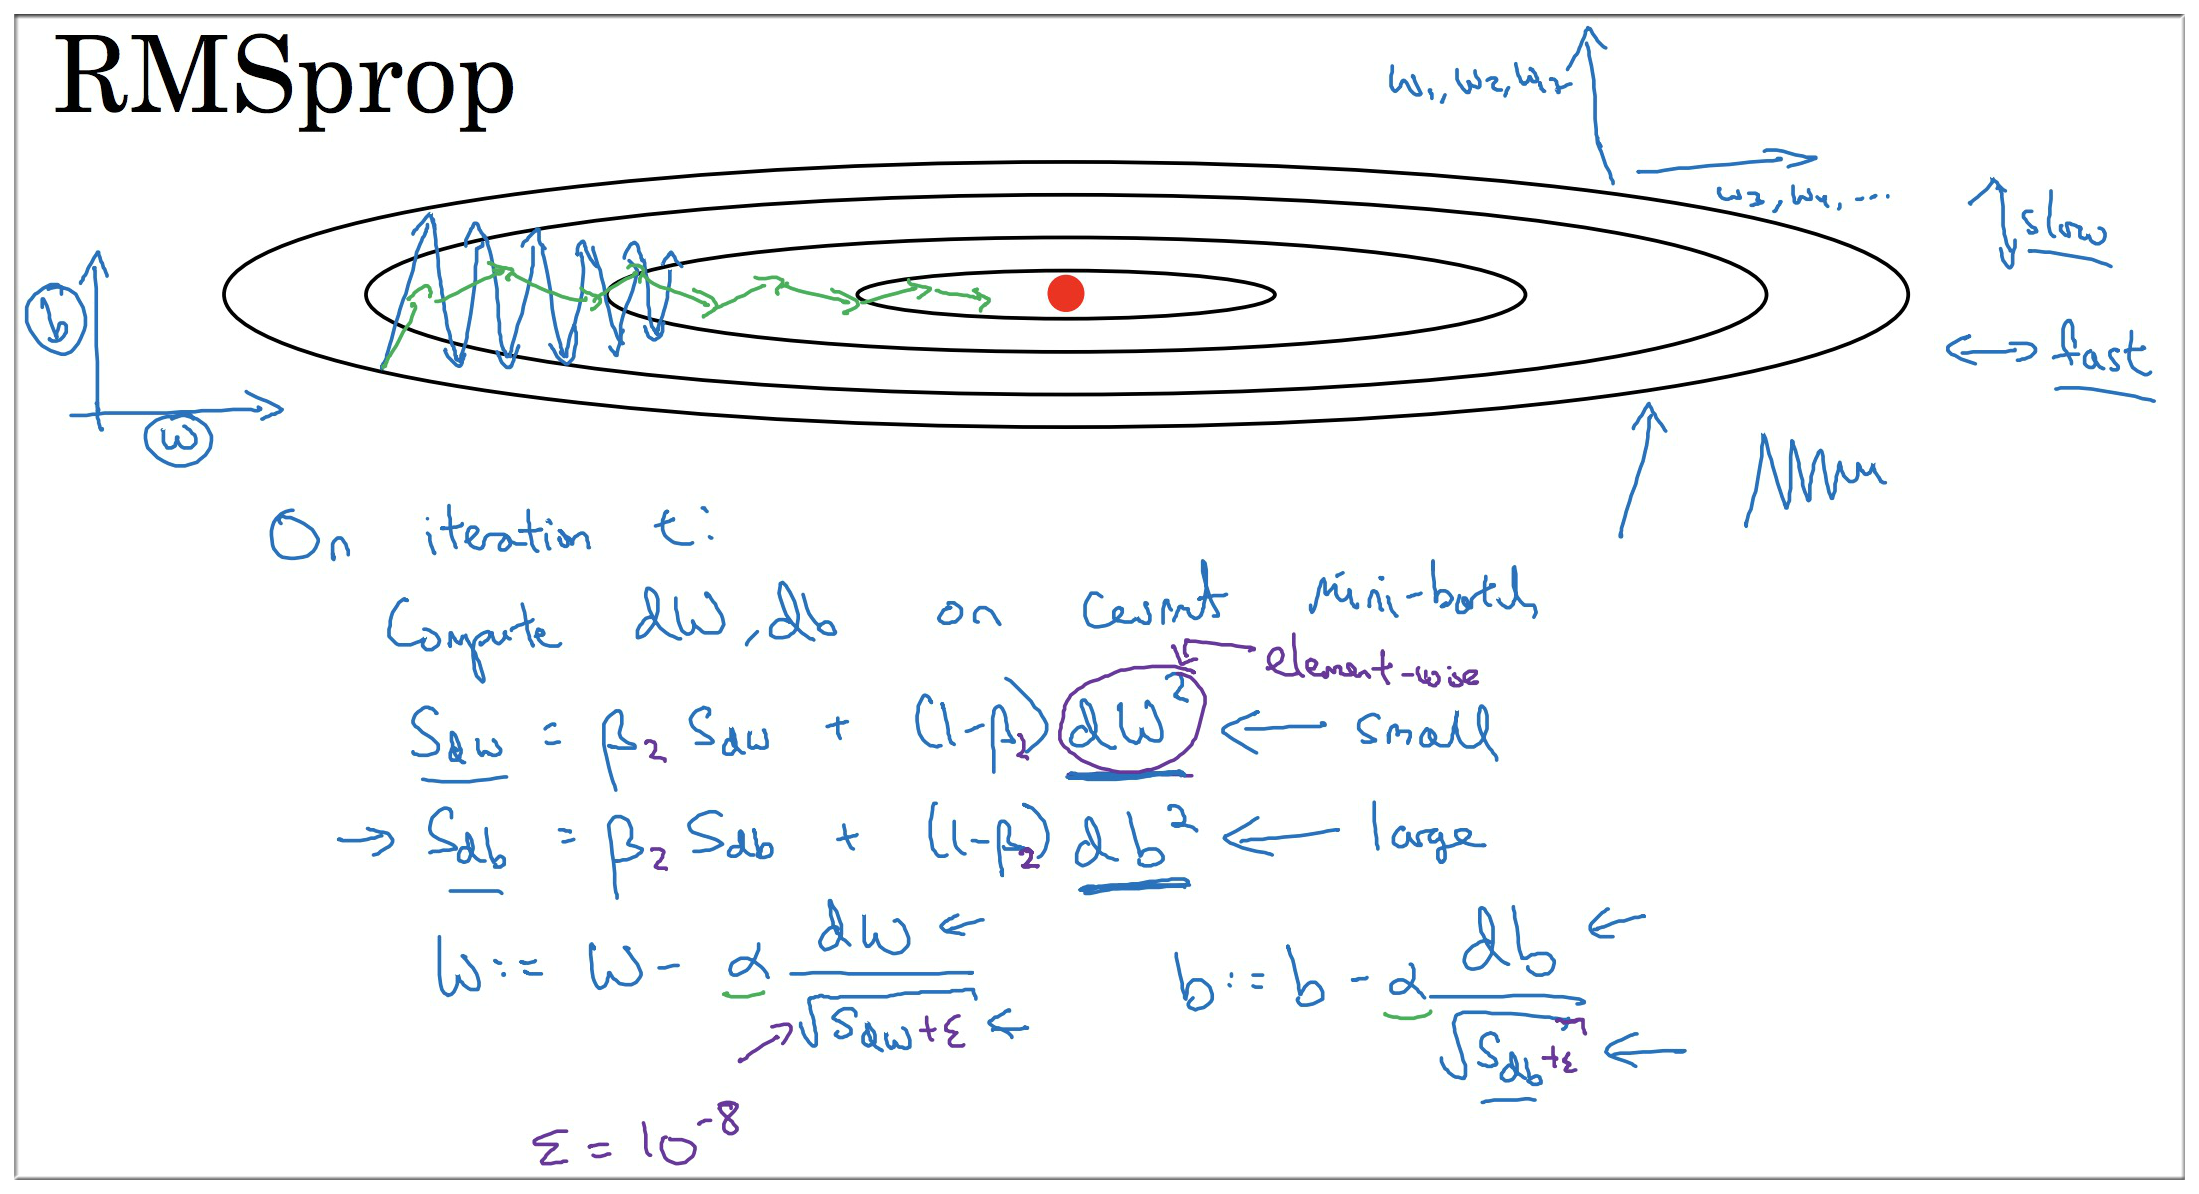 RMSprop
w₁, w₂, w₁₇
w₃, w₄, ...
slow
b
fast
w
On iteration t:
Compute dW, db on current mini-batch
element-wise
S_dw = β₂ S_dw + (1-β₂) dW² ← small
→ S_db = β₂ S_db + (1-β₂) db² ← large
W := W - α dW / √(S_dw + ε) ←
b := b - α db / √(S_db + ε) ←
ε = 10⁻⁸